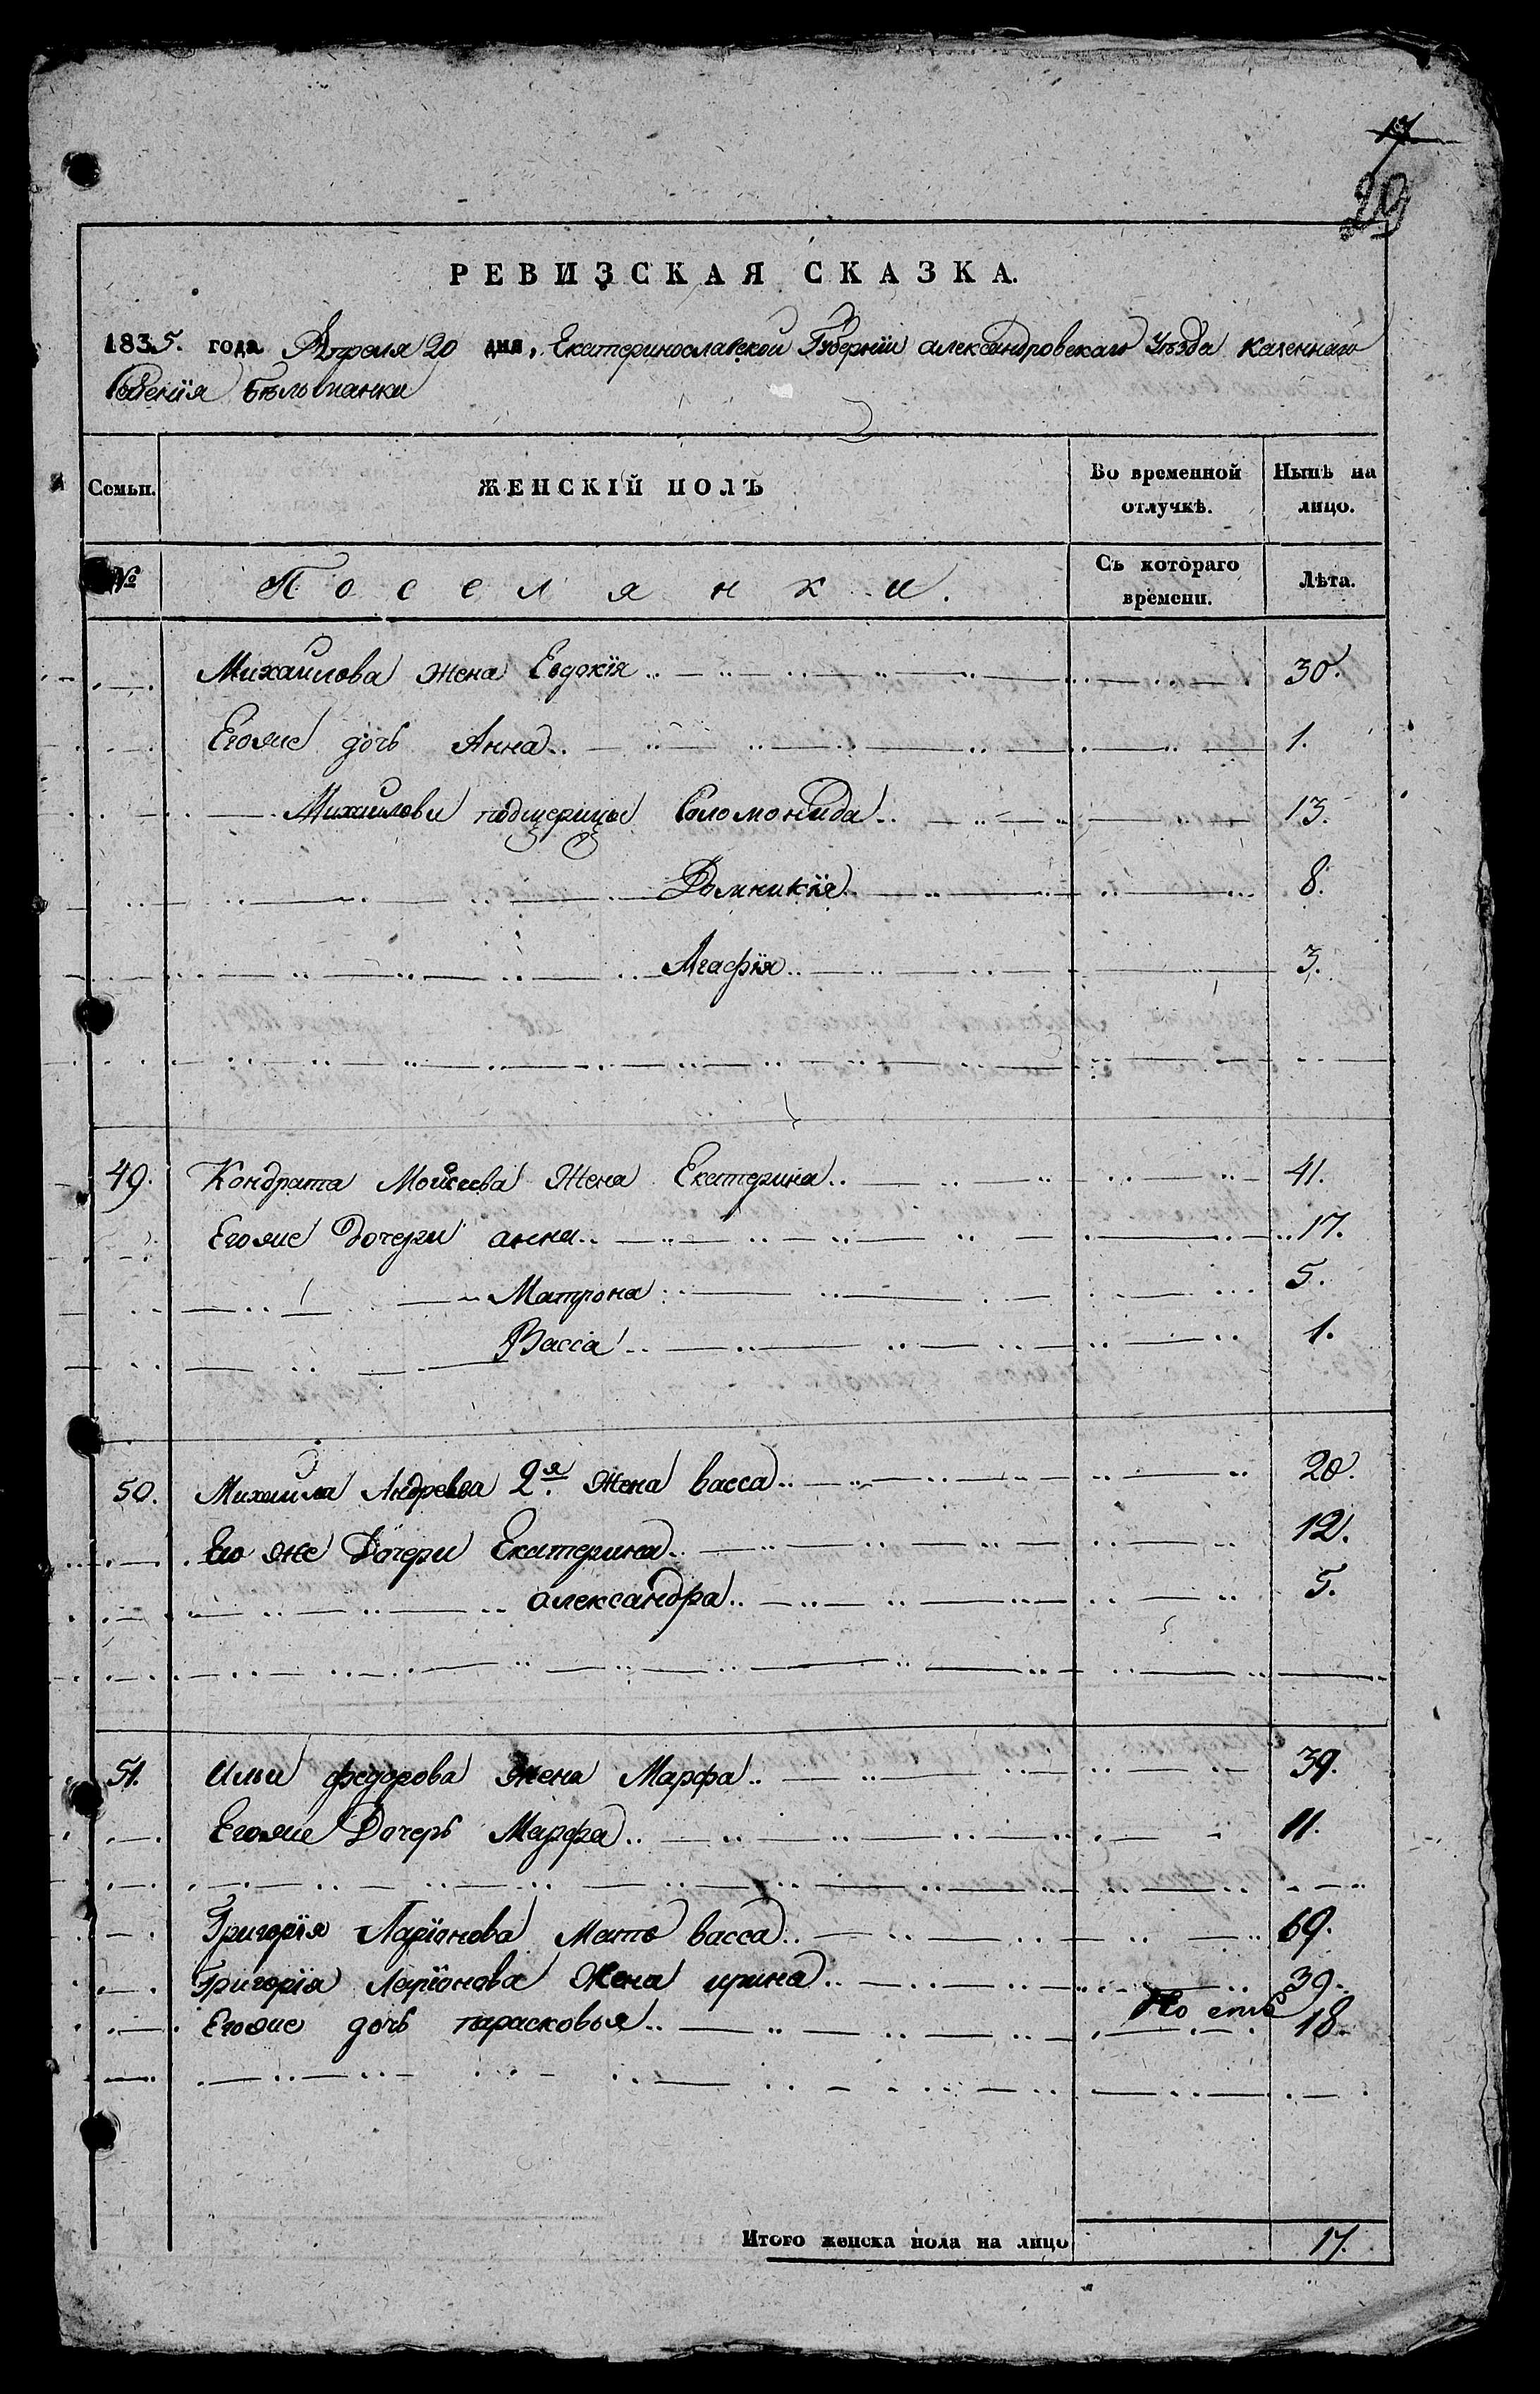 17
29
РЕВИЗСКАЯ СКАЗКА.
1835. года Апреля 20 дня, Екатеринославской Губернiи александровскаго Уѣзда казеннаго
Селенiя Бѣльманки
Семьи. ЖЕНСКIЙ ПОЛЪ Во временной отлучкѣ. Нынѣ на лицо.
№ Поселянки. Съ котораго времени. Лѣта.
Михайлова жена Евдокiя 30.
Егоже дочь Анна 1.
Михайлови подщерицы Соломонида 13.
Домникiя 8.
Агафiя 3.
49. Кондрата Моисеева Жена Екатерина 41.
Егоже Дочери анна 17.
Матрона 5.
Васса 1.
50. Михайла Андреева 2я. жена васса 20.
Его же Дочери Екатерина 12.
александра 5.
51. Ильи федорова жена Марфа 39.
Егоже Дочерь Марфа 11.
Григорiя Ларiонова Мать васса 69.
Григорiя Ларiонова Жена ирина 39.
Егоже дочь парасковья 18.
Итого женска пола на лицо 17.